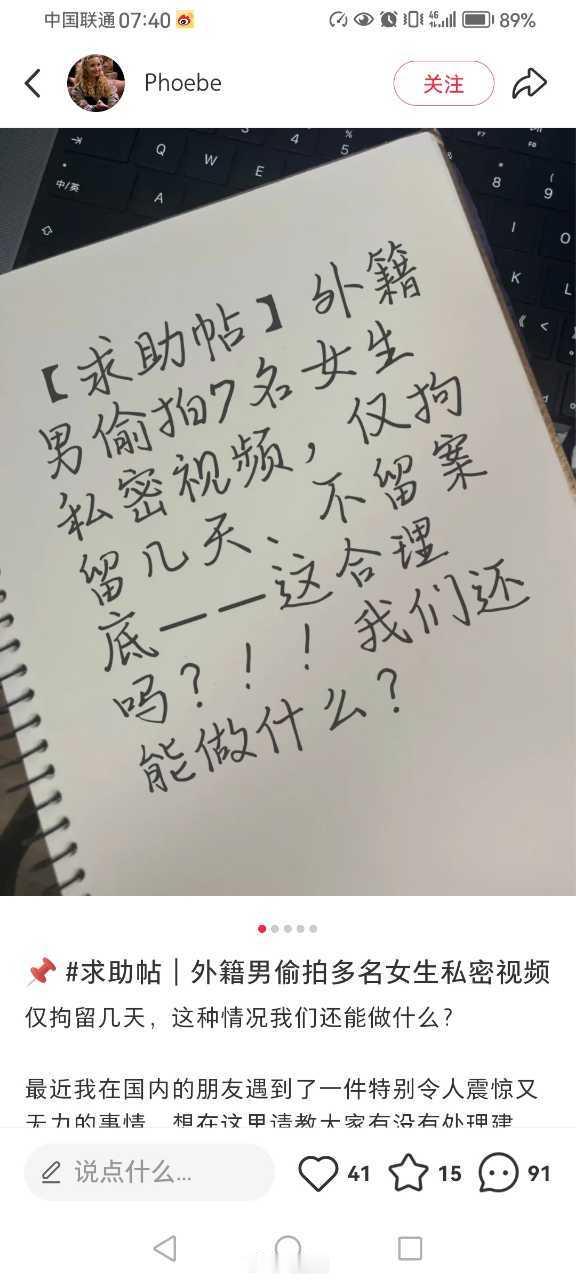 中国联通07:40
46
89%
Phoebe
关注
Q
W
E
4
%
5
F7
F8
*
8
(
9
中/英
A
I
O
K
L
《
<
【求助帖】外籍
男偷拍7名女生
私密视频，仅拘
留几天、不留案
底——这合理
吗？！！我们还
能做什么？
#求助帖｜外籍男偷拍多名女生私密视频
仅拘留几天，这种情况我们还能做什么？
最近我在国内的朋友遇到了一件特别令人震惊又
无力的事情，想在这里请教大家有没有处理建
说点什么...
41
15
91